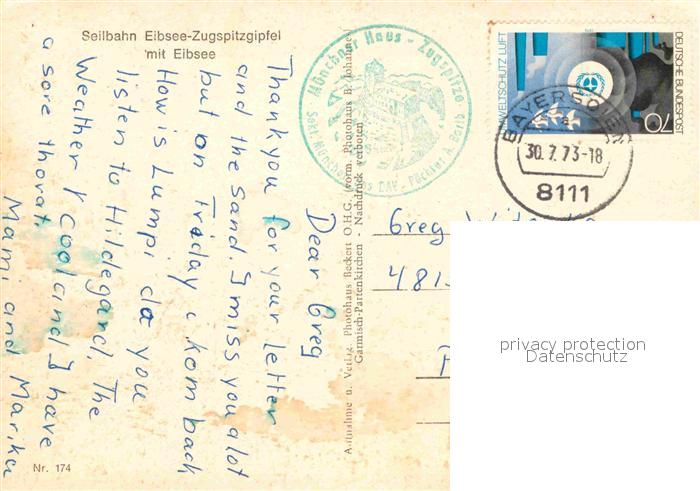 Seilbahn Eibsee-Zugspitzgipfel
mit Eibsee
Dear Greg
Thank you for your letter
and the sand. I miss you alot
but on Friday i kom back
How is Lumpi da you
listen to Hildegard. The
Weather / Cool and I have
a sore thorat.
Mami and Marika
Nr. 174
Aufnahme u. Verlag Photohaus Beckert O.H.G. (vorm. Photohaus B. Johannes)
Garmisch-Partenkirchen · Nachdruck verboten
Münchner Haus - Zugspitze
DAV - Pächter
UMWELTSCHUTZ LUFT
DEUTSCHE BUNDESPOST
70
30.7.73-18
8111
Greg
481
privacy protection
Datenschutz